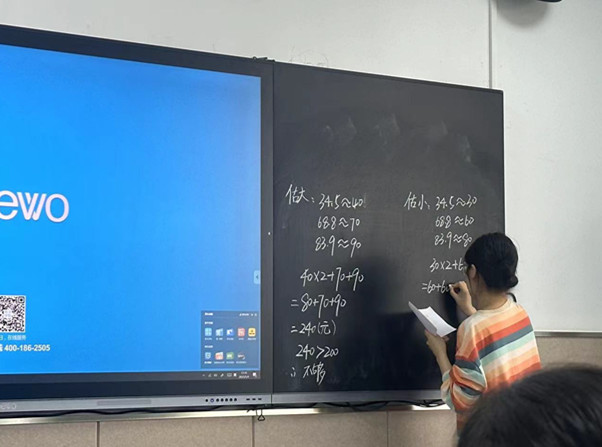 ewo
400-186-2505
估大: 34.5≈40
68.8≈70
83.9≈90
40×2+70+90
=80+70+90
=240(元)
240>200
∴ 不够
估小: 34.5≈30
68.8≈60
83.9≈80
30×2+6
=60+60